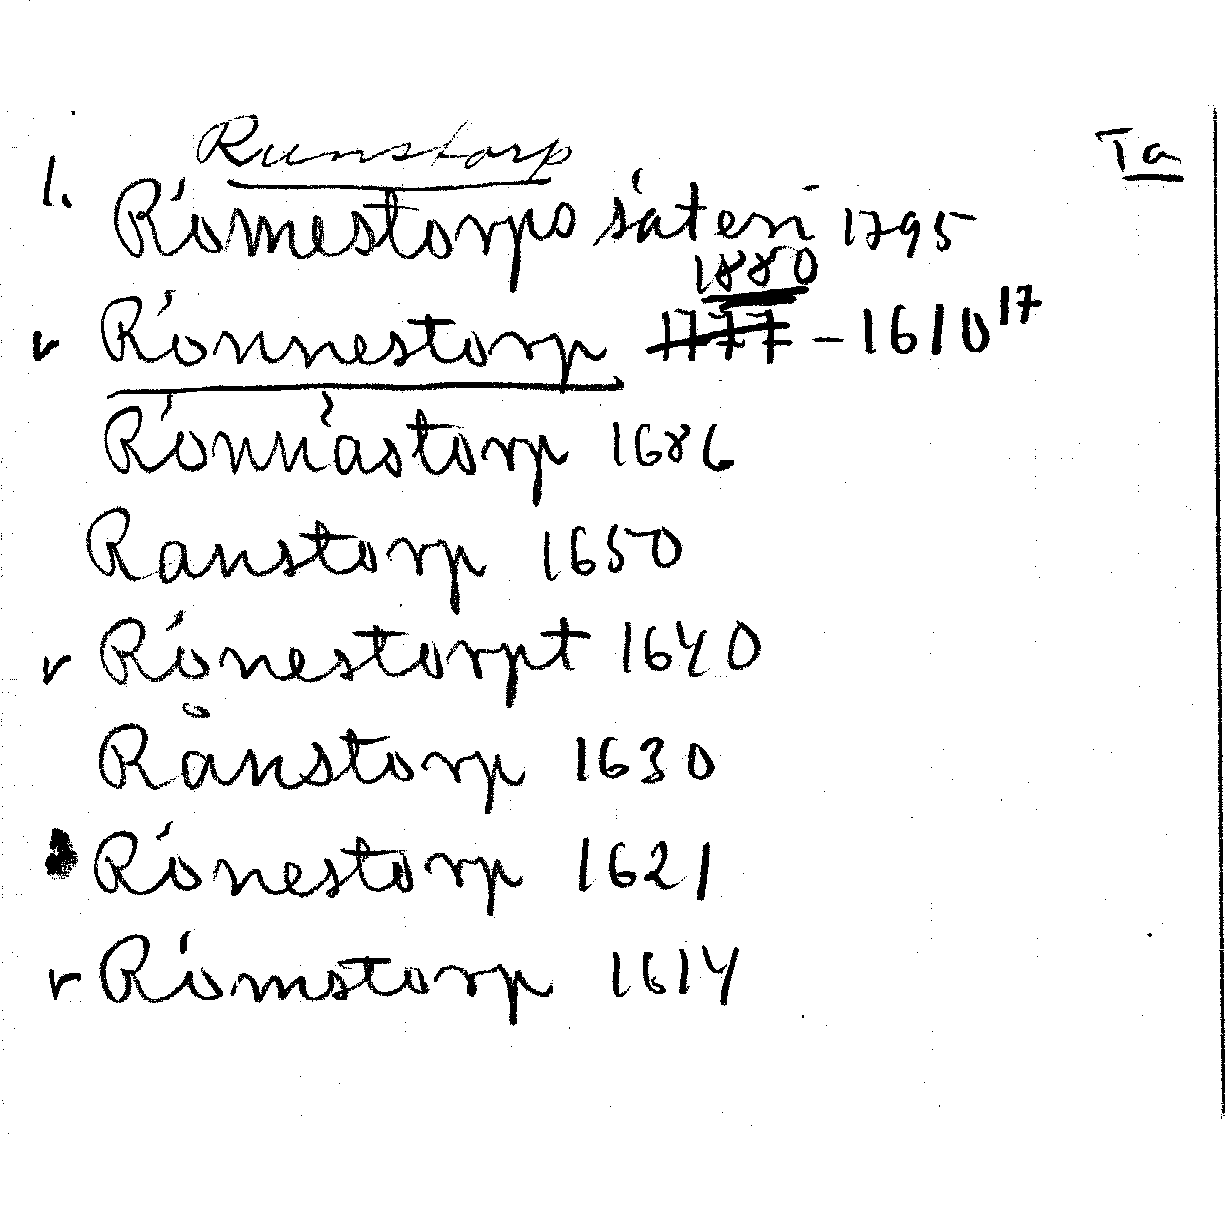 Runstorp Ta
1. Römestorps säteri 1795
1880
v Rönnestorp 1777 - 1610 17
Rönnästorp 1686
Ranstorp 1650
v Rönestorpt 1640
Rånstorp 1630
Rönestorp 1621
v Römstorp 1614